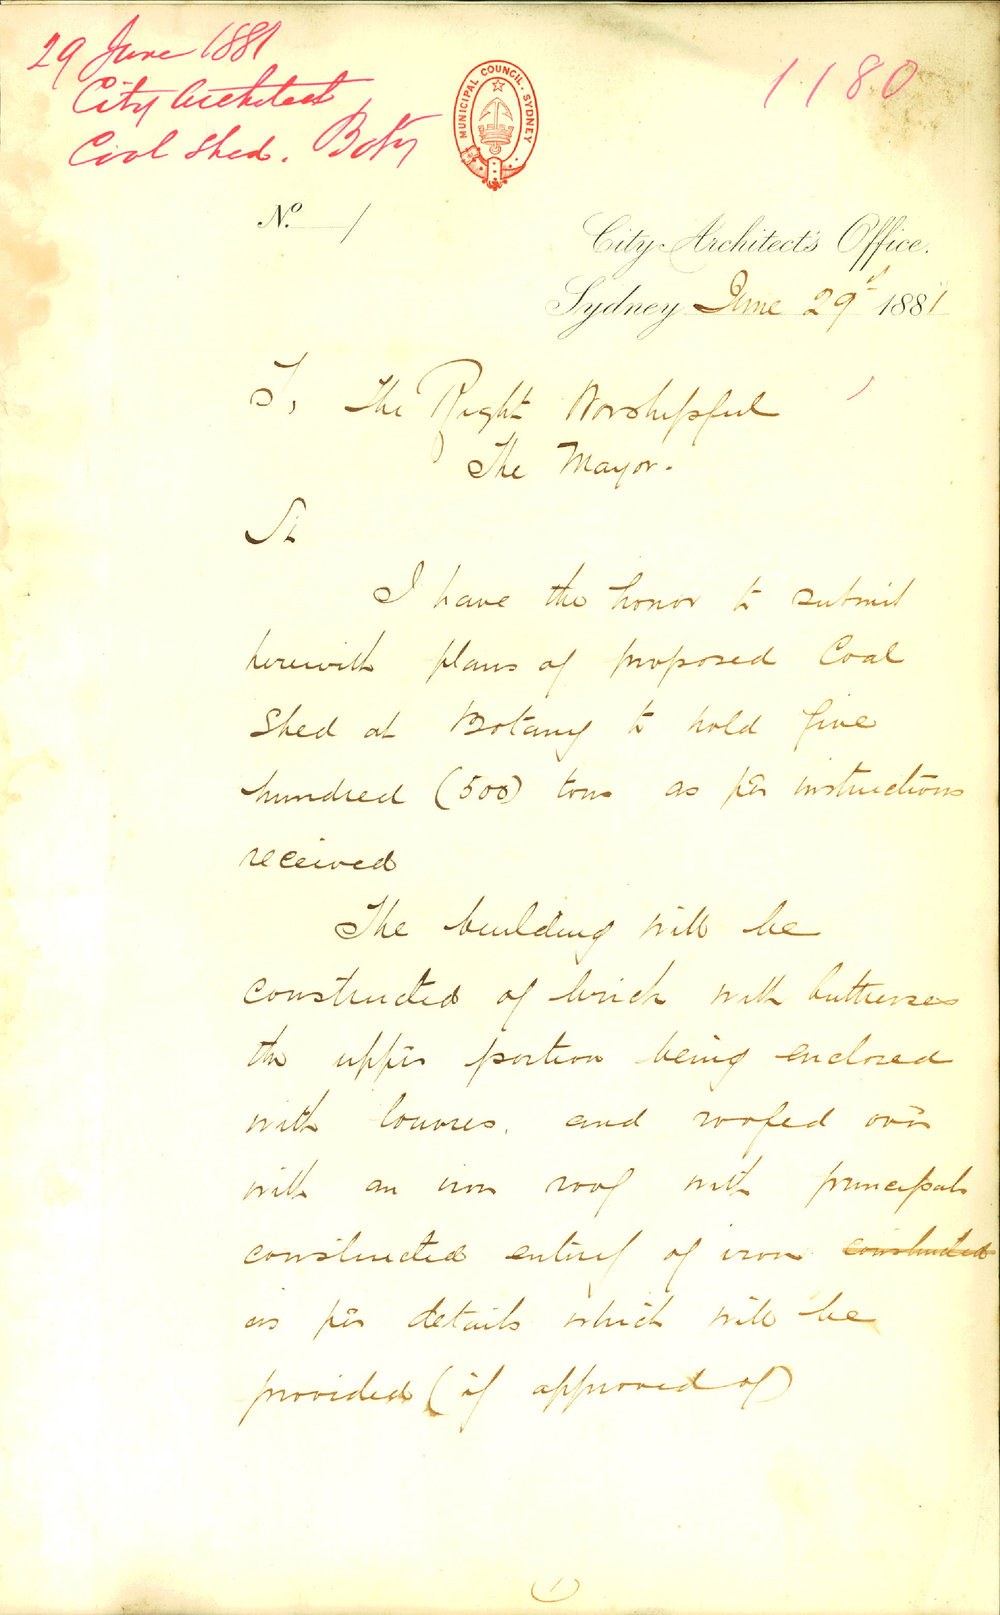 29 June 1881
City Architect
Coal Shed. Boty
1180
MUNICIPAL COUNCIL. SYDNEY
No. 1
City Architect's Office.
Sydney June 29th 1881
To, The Right Worshipful
The Mayor.
Sir
I have the honor to submit
herewith plans of proposed Coal
Shed at Botany to hold five
hundred (500) tons as per instructions
received
The building will be
constructed of brick with buttresses
the upper portion being enclosed
with louvres. and roofed over
with an iron roof with principals
constructed entirely of iron constructed
as per details which will be
provided (if approved of)
(1)